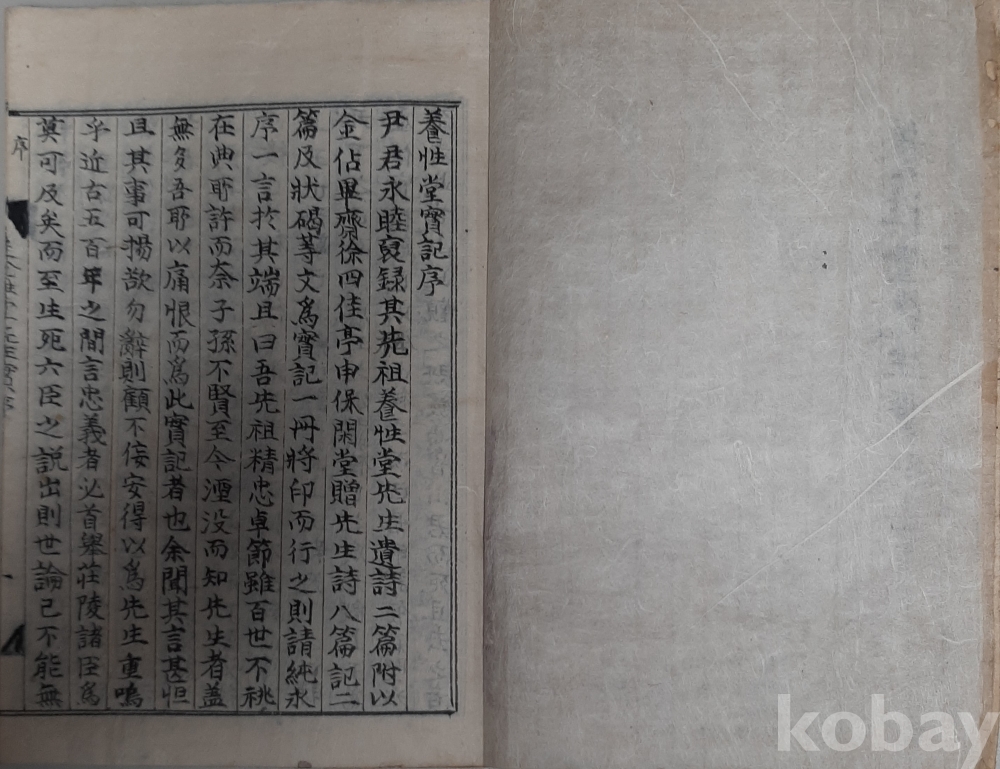 養性堂實記序
尹君永睦裒錄其先祖養性堂先生遺詩二篇附以
金佔畢齋徐四佳亭申保閑堂贈先生詩八篇記二
篇及狀碣等文爲實記一冊將印而行之則請純永
序一言於其端且曰吾先祖精忠卓節雖百世不祧
在典耶許而奈子孫不賢至今湮没而知先生者蓋
無多吾耶以痛恨而爲此實記者也余聞其言甚恒
且其事可揚欲勿辭則顧不侫安得以爲先生重嗚
乎近古五百年之間言忠義者必首舉莊陵諸臣爲
莫可及矣而至生死六臣之說出則世論已不能無
序
kobay